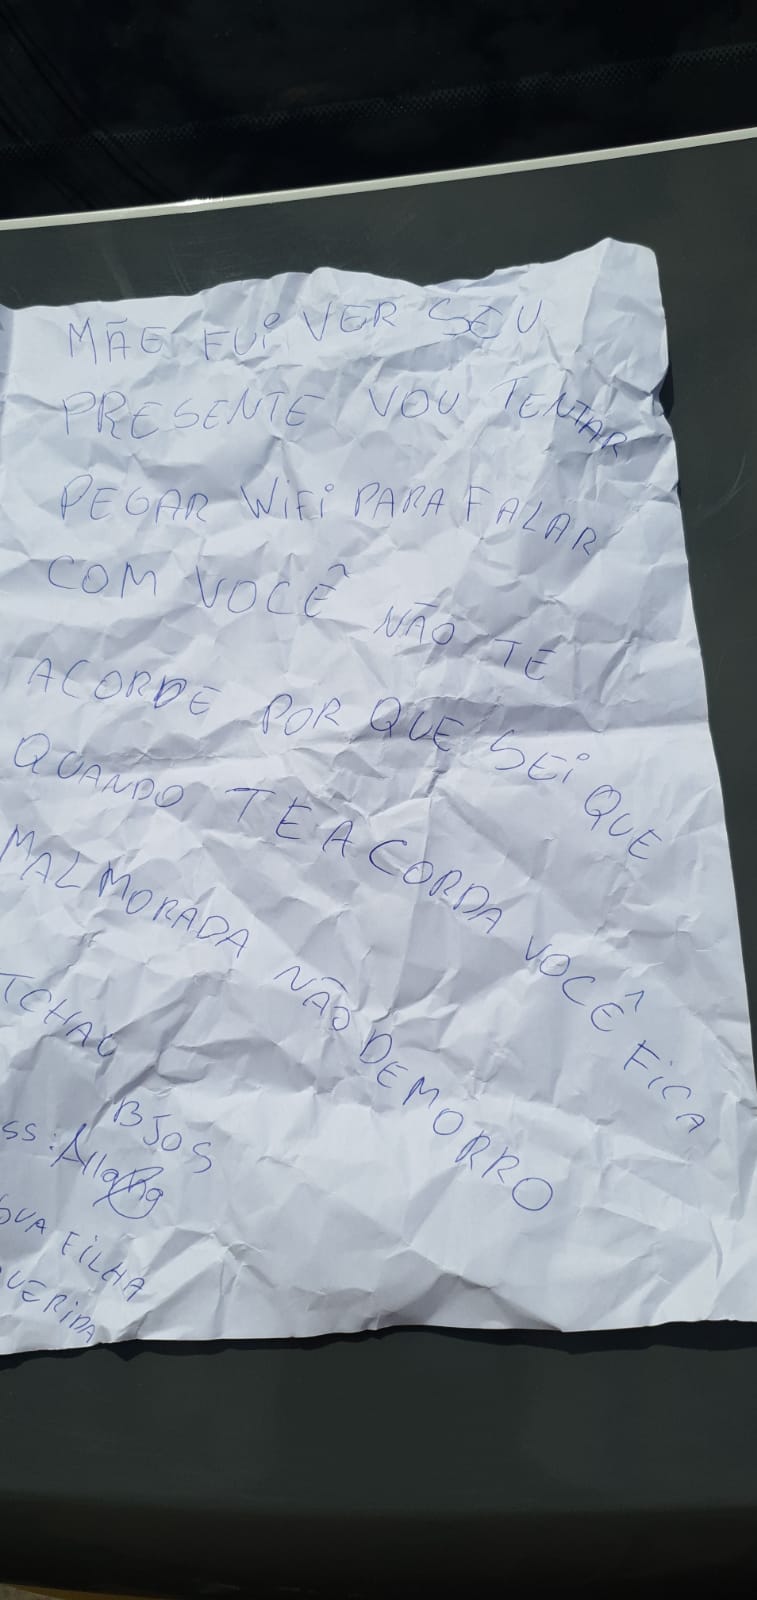 MÃE FUI VER SEU
PRESENTE VOU TENTAR
PEGAR WIFI PARA FALAR
COM VOCÊ NÃO TE
ACORDE POR QUE SEI QUE
QUANDO TE ACORDA VOCÊ FICA
MAL MORADA NÃO DEMORRO
TCHAU
BJOS
SS:
SUA FILHA
QUERIDA